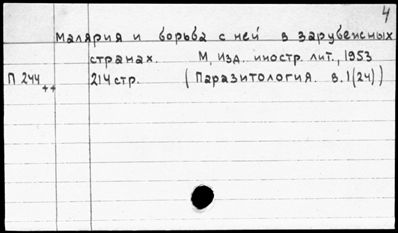 4
Малярия и борьба с ней в зарубежных
странах. М, Изд. иностр. лит., 1953
П 244++ 214 стр. (Паразитология. в.1(24))